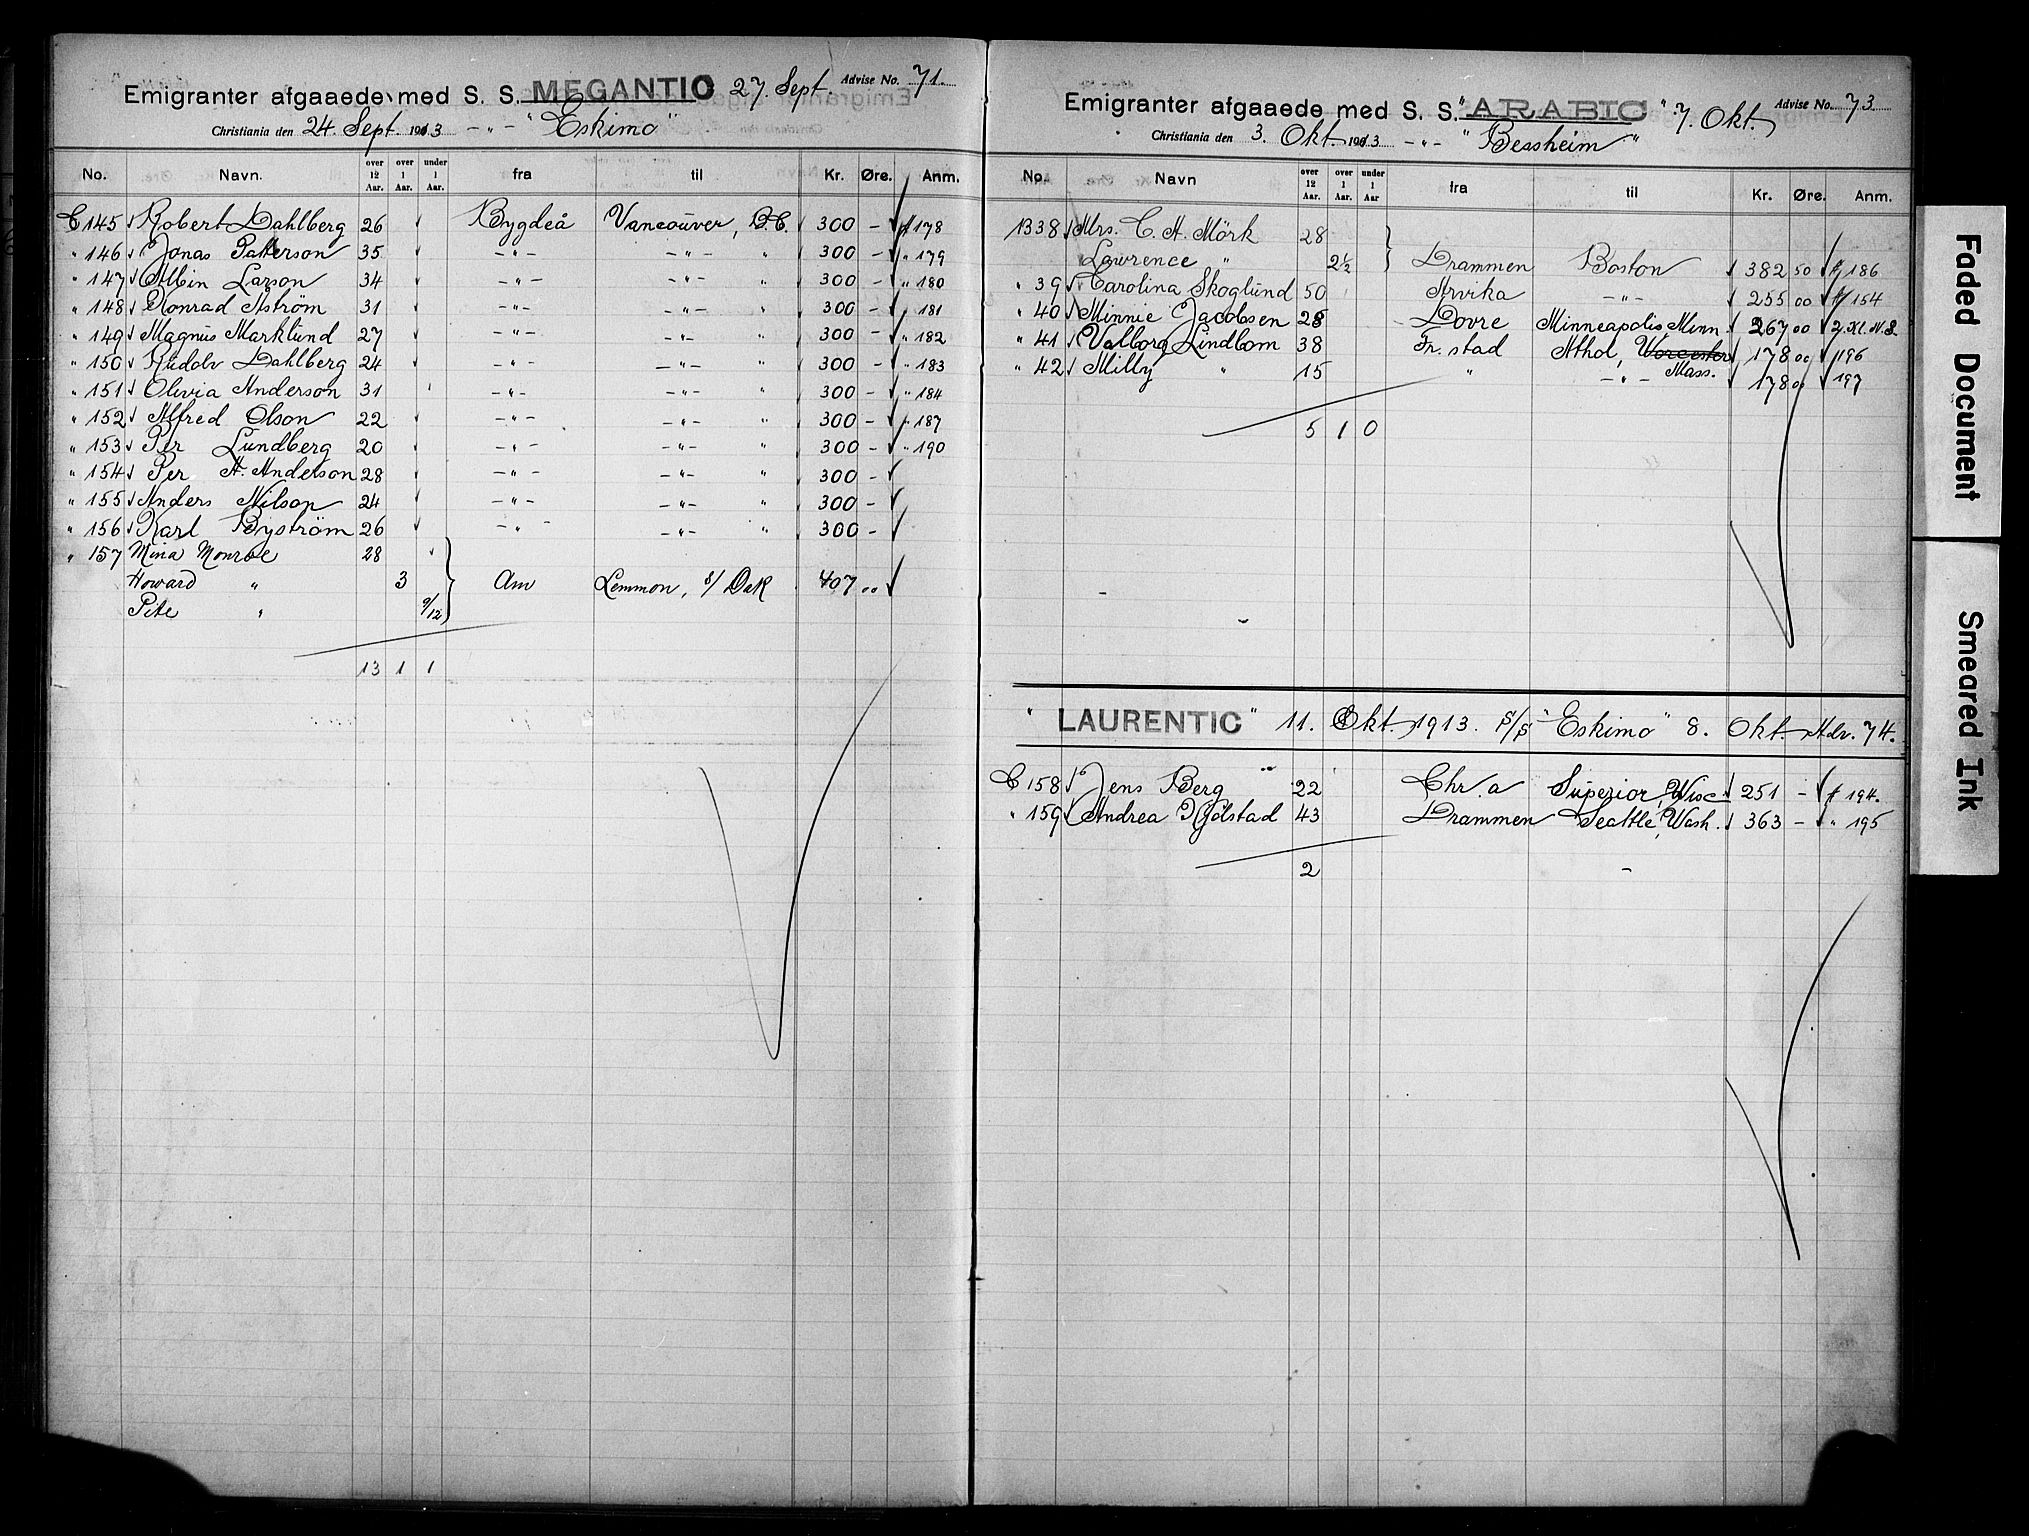 Emigranter afgaaede med S. S. MEGANTIC 27. Sept. Advise No. 71.
Christiania den 24 Sept. 1913 -"- "Eskimo"
No. Navn. over 12 Aar. over 1 Aar. under 1 Aar. fra til Kr. Øre. Anm.
C 145 Robert Dahlberg 26 Bygdeå Vancouver, B.C. 300 - 178
" 146 Jonas Patterson 35 -"- -"- " 300 - " 179
" 147 Albin Larson 34 -"- -"- " 300 - " 180
" 148 Konrad Åström 31 -"- -"- " 300 - " 181
" 149 Magnus Marklund 27 -"- -"- " 300 - " 182
" 150 Rudolv Dahlberg 24 -"- -"- " 300 - " 183
" 151 Olivia Anderson 31 -"- -"- " 300 - " 184
" 152 Alfred Olson 22 -"- -"- " 300 - " 187
" 153 Per Lundberg 20 -"- -"- " 300 - " 190
" 154 Per A. Anderson 28 -"- -"- " 300 -
" 155 Anders Nilson 24 -"- -"- " 300 -
" 156 Karl Byström 26 -"- -"- " 300 -
" 157 Mina Monroe 28
Howard " 3 Am Lemmon, S/Dak 407 00
Pite " 9/12
13 1 1
Emigranter afgaaede med S. S. "ARABIC" 7. Okt. Advise No. 73
Christiania den 3. Okt. 1913 -"- "Bessheim"
No. Navn over 12 Aar. over 1 Aar. under 1 Aar fra til Kr. Øre. Anm.
1338 Mrs. C. A. Mörk 28
Lawrence " 2½ Drammen Boston 382 50 186
" 39 Carolina Skoglund 50 Arvika -"- 255 00 154
" 40 Minnie Jacobsen 28 Dovre Minneapolis Minn. 267 00
" 41 Valborg Lindbom 38 Fr.stad Athol, Worcester 178 00 196
Mass.
" 42 Milly " 15 " -"- 178 00 197
5 1 0
"LAURENTIC" 11. Okt. 1913. S/S "Eskimo" 8. Okt. Adv. 74.
C 158 Jens Berg 22 Chr.a Superior, Wisc. 251 - 194.
" 159 Andrea Kjölstad 43 Drammen Seattle, Wash. 363 - " 195
2
Faded Document
Smeared Ink